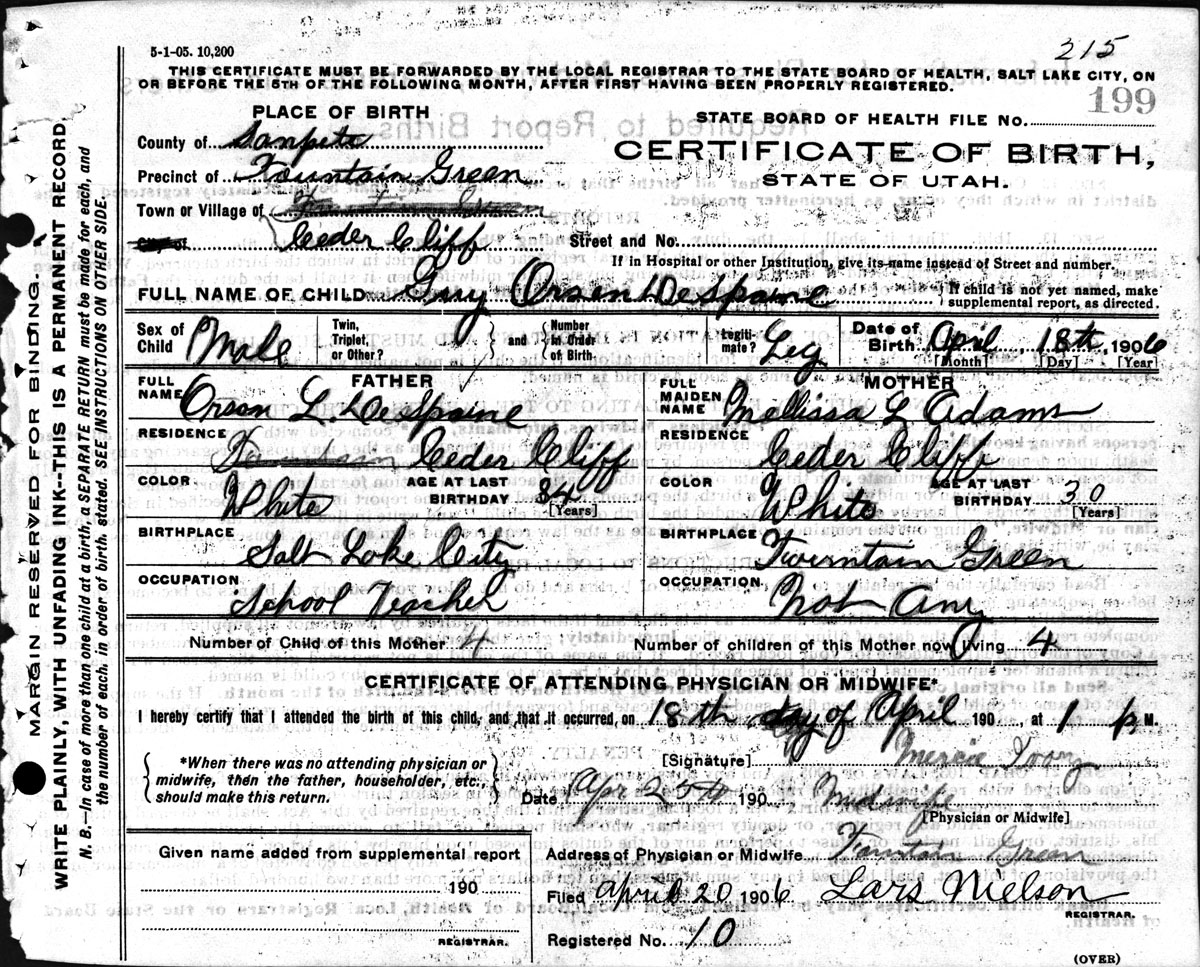 215
5-1-05. 10,200
THIS CERTIFICATE MUST BE FORWARDED BY THE LOCAL REGISTRAR TO THE STATE BOARD OF HEALTH, SALT LAKE CITY, ON
OR BEFORE THE 5TH OF THE FOLLOWING MONTH, AFTER FIRST HAVING BEEN PROPERLY REGISTERED.
199
PLACE OF BIRTH
STATE BOARD OF HEALTH FILE NO.
County of Sanpete
CERTIFICATE OF BIRTH,
Precinct of Fountain Green
STATE OF UTAH.
Town or Village of
City of Ceder Cliff
Street and No.
If in Hospital or other Institution, give its name instead of Street and number.
FULL NAME OF CHILD Guy Orsen DeSpaine
If child is not yet named, make
supplemental report, as directed.
Sex of Child Male
Twin, Triplet, or Other?
and
Number in Order of Birth
Legitimate? Leg
Date of Birth April 18th, 1906
[Month] [Day] [Year]
FATHER
FULL NAME Orson L. DeSpaine
RESIDENCE
Ceder Cliff
COLOR White
AGE AT LAST BIRTHDAY 34
[Years]
BIRTHPLACE
Salt Lake City
OCCUPATION
School Teacher
MOTHER
FULL MAIDEN NAME Mellissa L Adams
RESIDENCE
Ceder Cliff
COLOR White
AGE AT LAST BIRTHDAY 30
[Years]
BIRTHPLACE
Fountain Green
OCCUPATION
Not Any
Number of Child of this Mother 4
Number of children of this Mother now living 4
CERTIFICATE OF ATTENDING PHYSICIAN OR MIDWIFE*
I hereby certify that I attended the birth of this child, and that it occurred, on 18th day of April 190 , at 1 P M.
*When there was no attending physician or
midwife, then the father, householder, etc.,
should make this return.
[Signature] Mercie
Date Apr 25th 190
Midwife
[Physician or Midwife]
Given name added from supplemental report
Address of Physician or Midwife Fountain Green
190
Filed April 20 1906 Lars Nielson
REGISTRAR.
REGISTRAR.
Registered No. 10
(OVER)
MARGIN RESERVED FOR BINDING.
WRITE PLAINLY, WITH UNFADING INK--THIS IS A PERMANENT RECORD.
N. B.—In case of more than one child at a birth, a SEPARATE RETURN must be made for each, and
the number of each, in order of birth, stated. SEE INSTRUCTIONS ON OTHER SIDE.